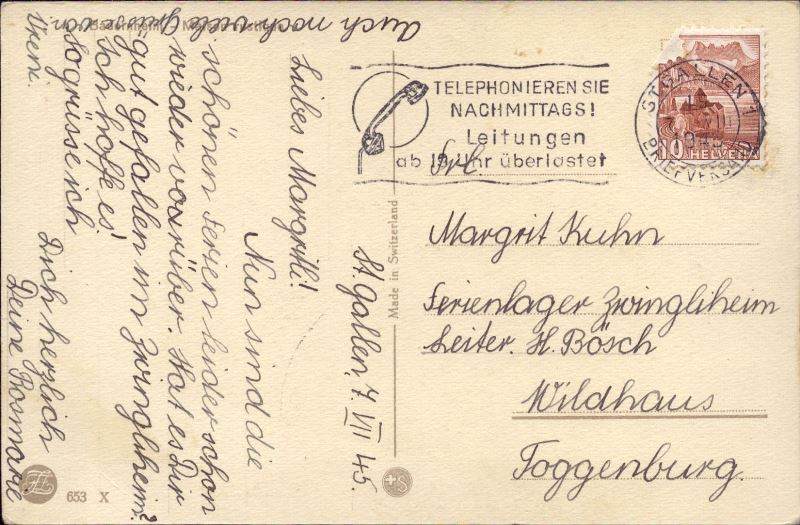 St. Gallen, 7. VII 45.
Liebes Margritli!
Nun sind die
schönen Ferien leider schon
wieder vorüber. Hat es Dir
gut gefallen im Zwingliheim?
Ich hoffe es!
So grüsse ich
Dich herzlich
Deine Rosmarie
Auch noch viele Grüsse von
Vreni.
Made in Switzerland
653 X
+S
TELEPHONIEREN SIE
NACHMITTAGS!
Leitungen
ab 19 Uhr überlastet
ST. GALLEN 1
BRIEFVERSAND
10 HELVETIA
Frl.
Margrit Kuhn
Ferienlager Zwingliheim
Leiter. H. Bösch
Wildhaus
Toggenburg.